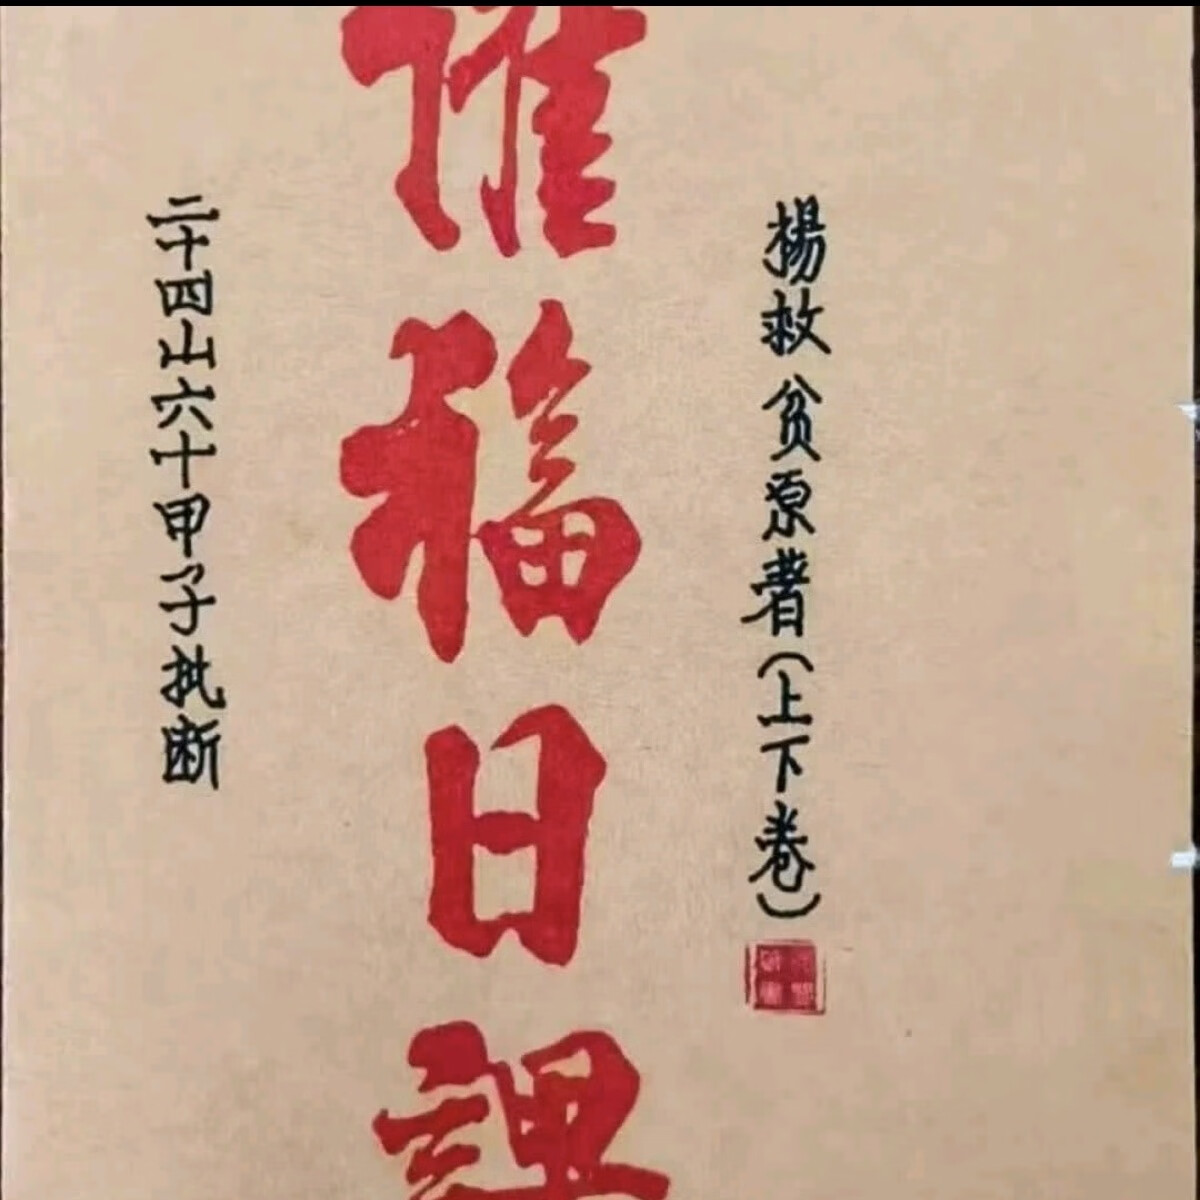 楊救贫原著(上下卷)
催福日課
二十四山六十甲子批断